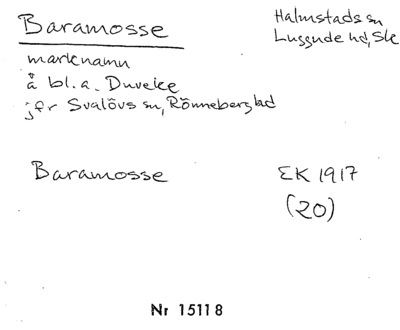 Baramosse
Halmstads sn
Luggude hd, Sk
marknamn
å bl.a. Duveke
jfr Svalövs sn, Rönnebergs hd
Baramosse
EK 1917
(20)
Nr 15118